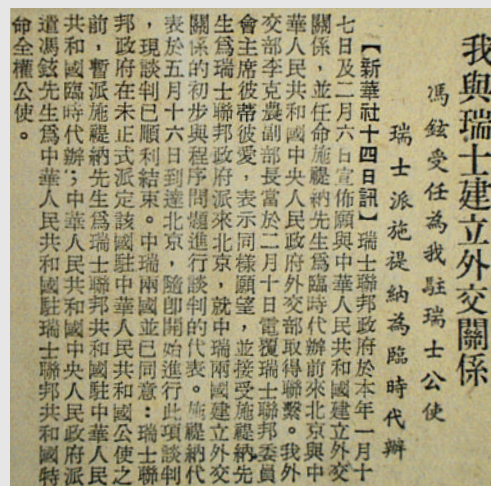 我與瑞士建立外交關係
馮鉉受任為我駐瑞士公使
瑞士派施禔納為臨時代辦
【新華社十四日訊】瑞士聯邦政府於本年一月十
七日及二月六日宣佈願與中華人民共和國建立外交
關係，並任命施禔納先生爲臨時代辦前來北京與中
華人民共和國中央人民政府外交部取得聯繫。我外
交部李克農副部長當於二月十日電覆瑞士聯邦委員
會主席彼蒂彼愛，表示同樣願望，並接受施禔納先
生爲瑞士聯邦政府派來北京，就中瑞兩國建立外交
關係的初步與程序問題進行談判的代表。施禔納代
表於五月十六日到達北京，隨卽開始進行此項談判
，現談判已順利結束。中瑞兩國並已同意：瑞士聯
邦政府在未正式派定該國駐中華人民共和國公使之
前，暫派施禔納先生爲瑞士聯邦共和國駐中華人民
共和國臨時代辦；中華人民共和國中央人民政府派
遣馮鉉先生爲中華人民共和國駐瑞士聯邦共和國特
命全權公使。